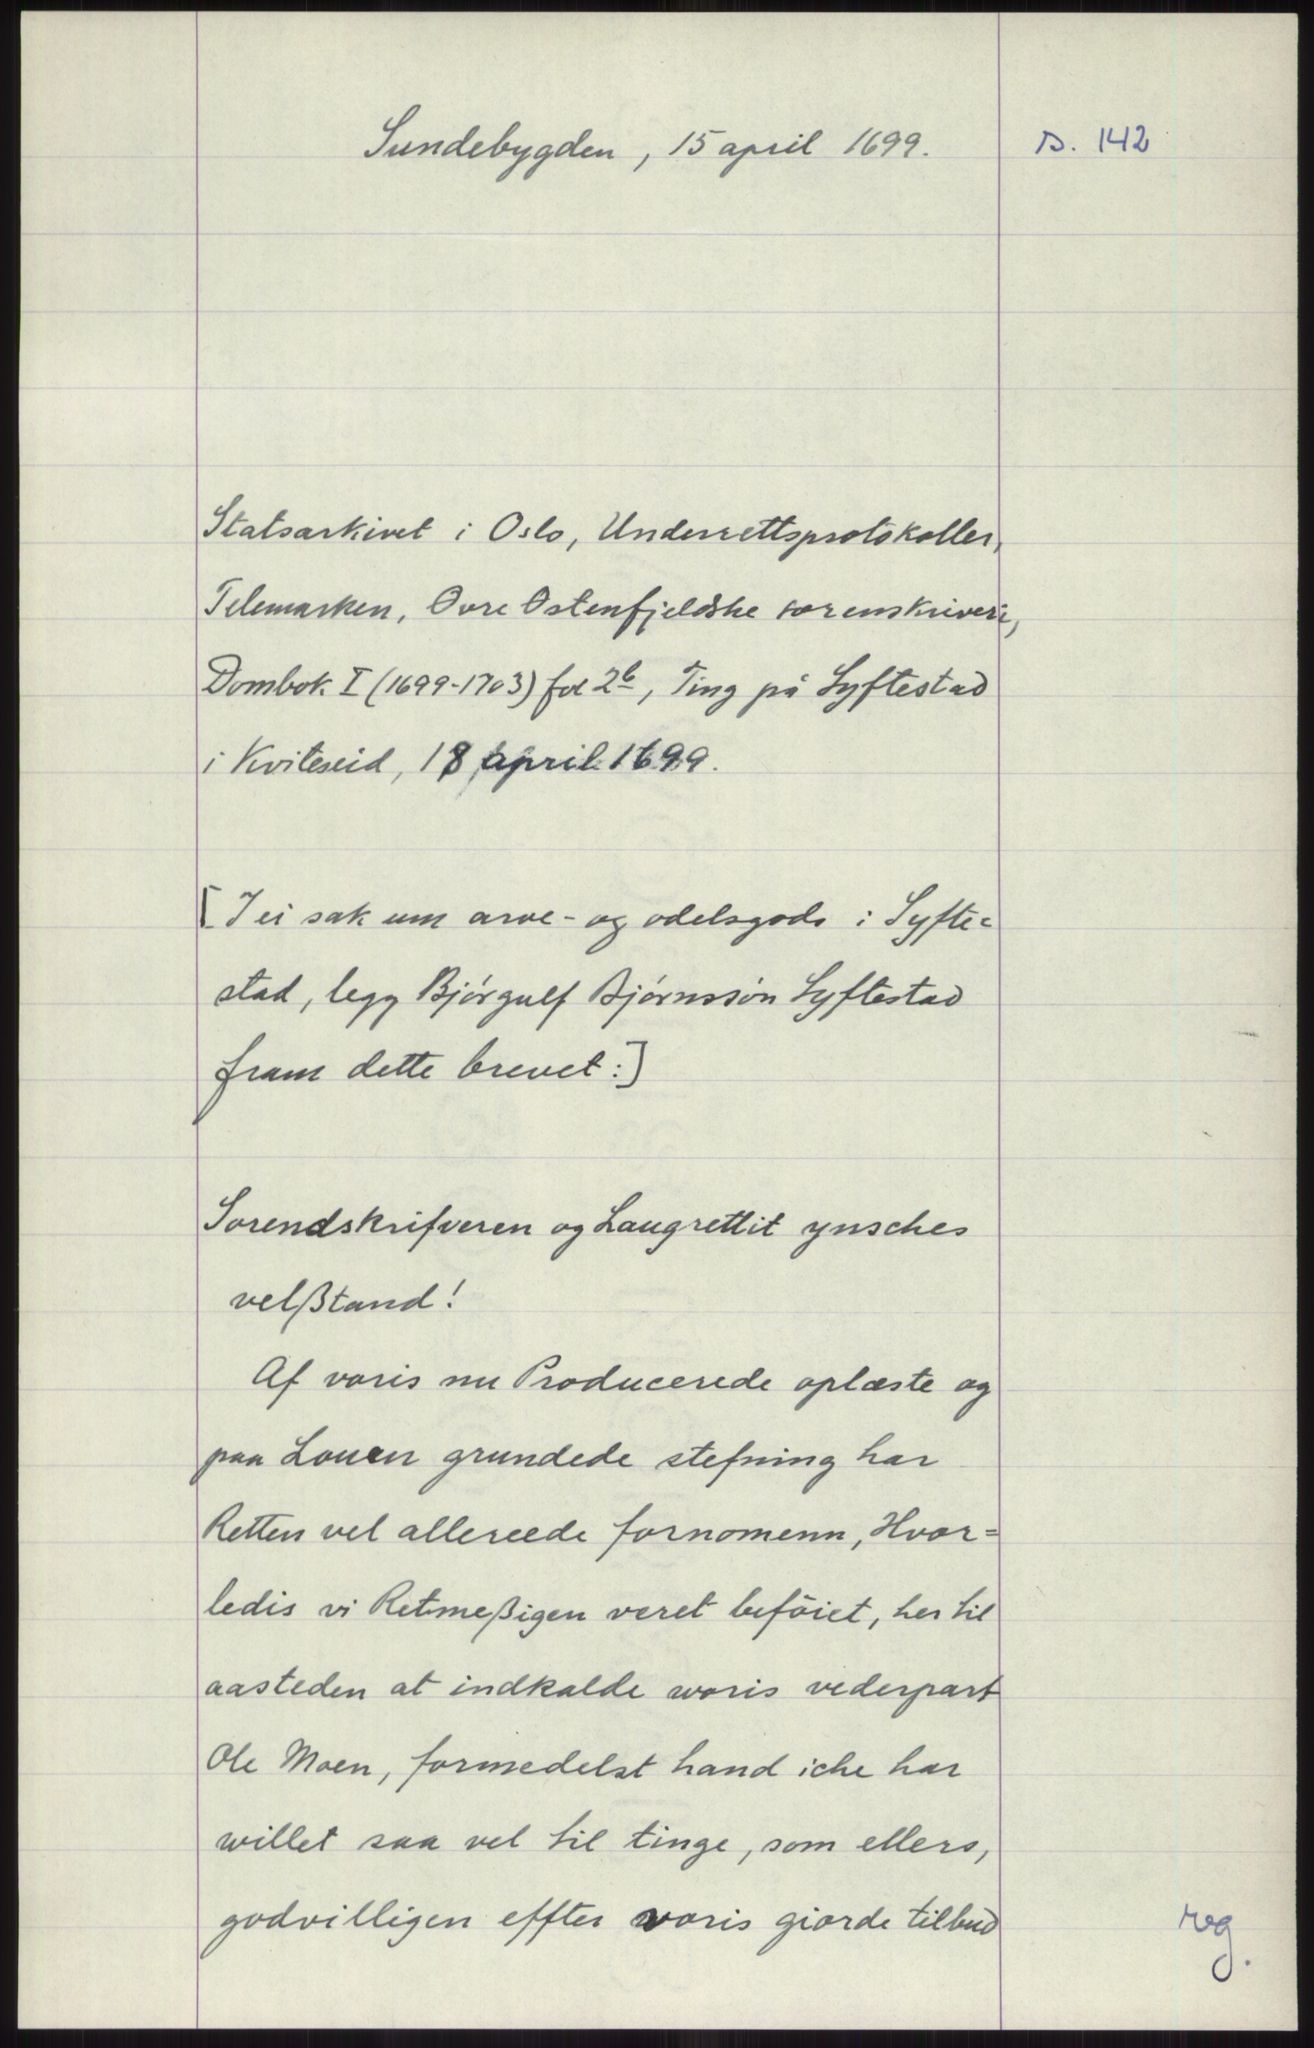 Sundebygden, 15 april 1699.
s. 142
Statsarkivet i Oslo, Underrettsprotokoller,
Telemarken, Øvre Østenfjeldske sorenskriveri,
Dombok I (1699-1703) fol 2b, Ting på Lyftestad
i Kviteseid, 18 april 1699.
[I ei sak um arve- og odelsgods i Syfte=
stad, legg Bjórgulf Bjórnssón Lyftestad
fram dette brevet:]
Sorendskrifveren og Laugrettit ynsches
velßtand!
Af voris nu Producerede oplæste og
paa Louen grundede stefning har
Retten vel allereede fornomenn, Hvor=
ledis vi Retmeßigen veret beföiet, her til
aasteden at indkalde woris vederpart
Ole Moen, formedelst hand iche har
willet saa vel til tinge, som ellers,
godvilligen effter woris giorde tilbud
reg.